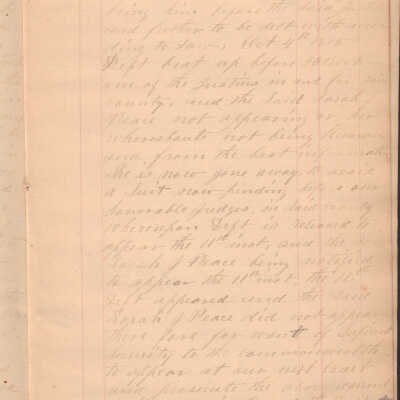 bring him before the said
and further to be delt with accor
ding to law. Oct 4th
Deft beat up before
one of the Justices in and for said
county, and the said Sarah
Peace not appearing or her
whereabouts not being Known
and from the best information
she is now gone away to avoid
a suit now pending before our
honorable judges, in said county
Whereupon Deft is released to
appear the 11th inst, and the
Sarah J Peace being notified
to appear the 11th inst, the 11th
Deft appeared and the said
Sarah J Peace did not appear
there fore for want of
security to the commonwealth
to appear at our next court
and prosecute the above warrant